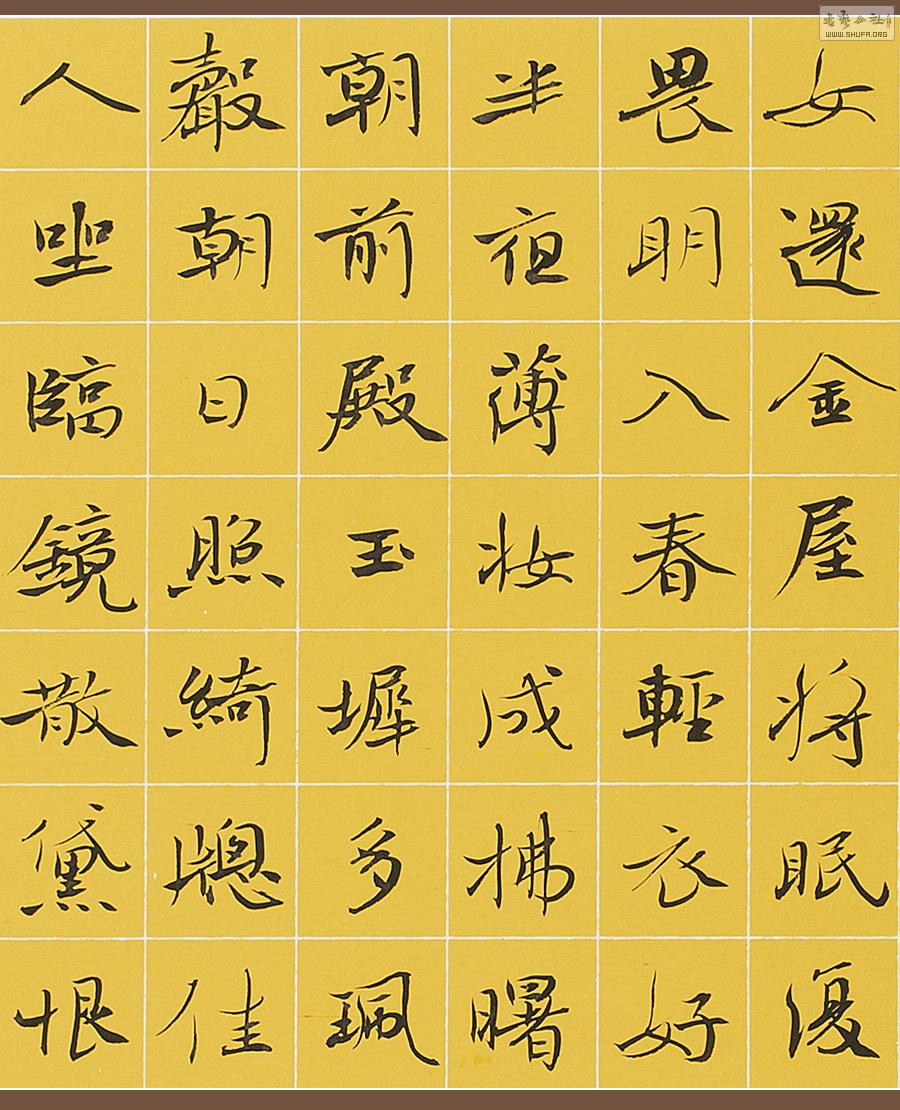 女還金屋將眠復
畏明入春輕衣好
半夜薄妝成拂曙
朝前殿玉墀多珮
聲朝日照綺牕佳
人坐臨鏡散黛恨
書藝公社
WWW.SHUFA.ORG